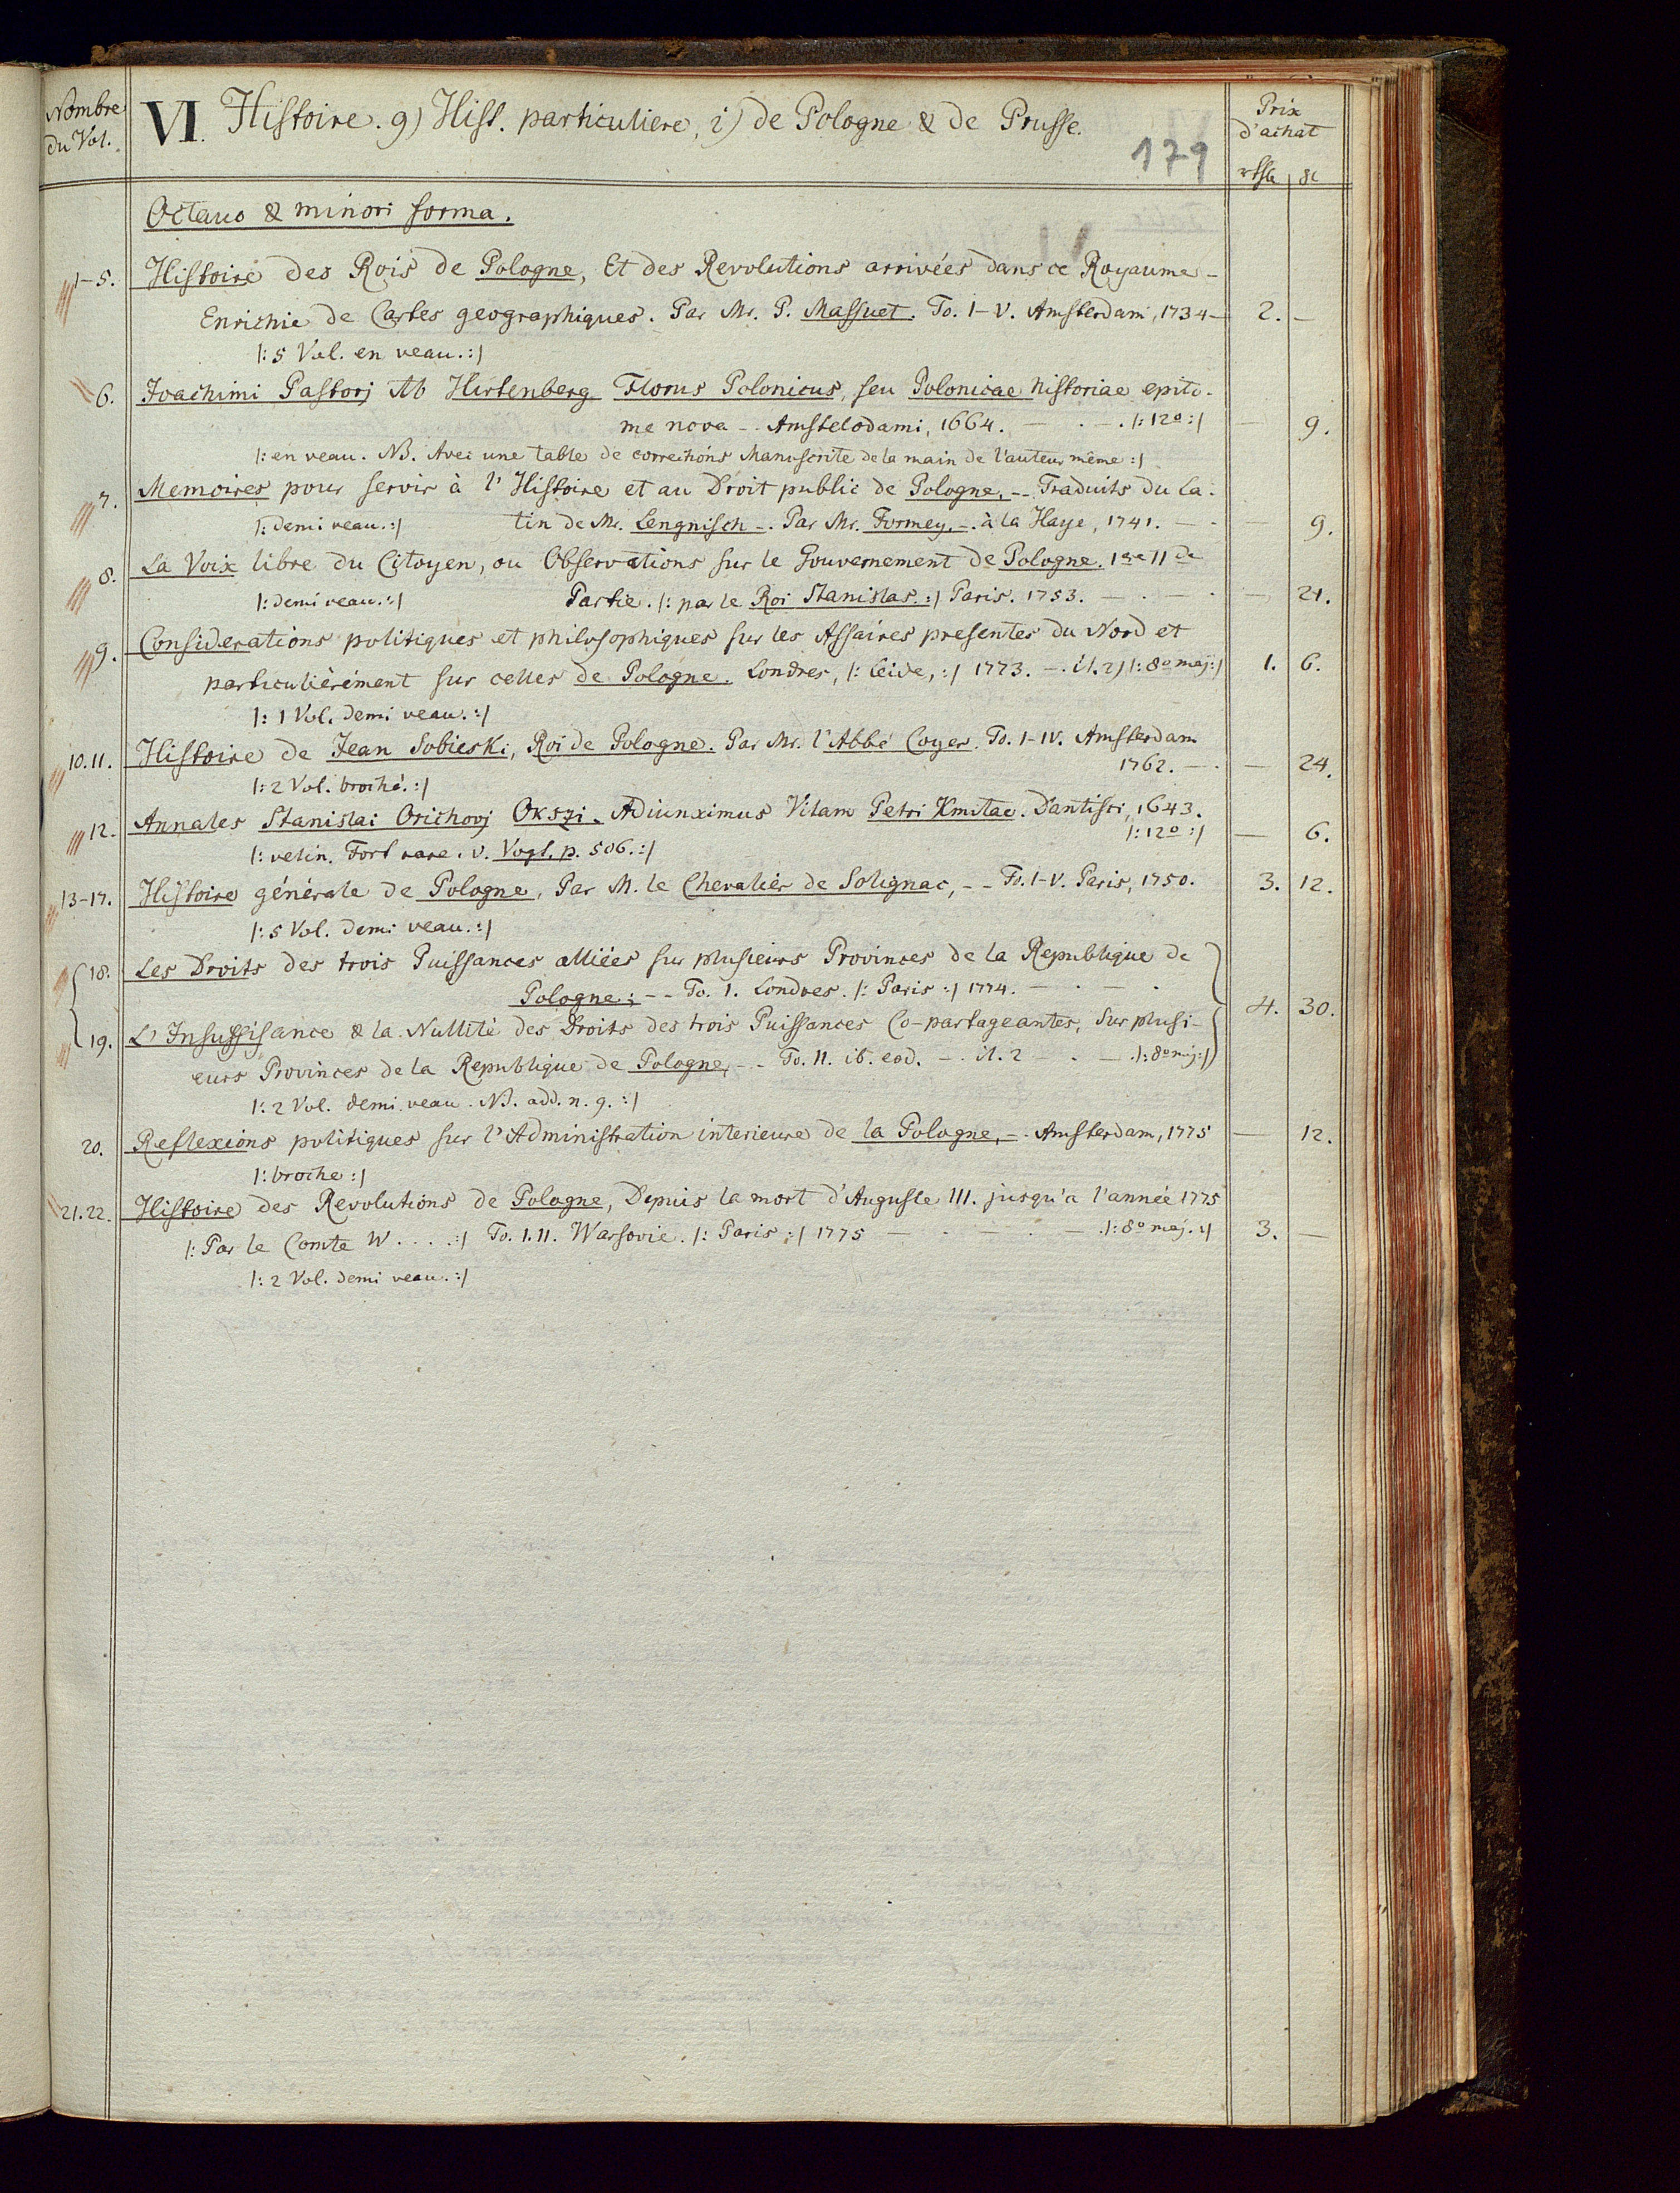 Nombre du Vol.
VI. Histoire. g) Hist. particuliere, i) de Pologne & de Prusse.
179
Prix d'achat
Octavo & minori forma.
1-5. Histoire des Rois de Pologne, Et des Revolutions arrivées dans ce Royaume -
Enrichie de Cartes geographiques. Par Mr. P. Massuet. To. I-V. Amsterdam, 1734 - 2. -
/: 5 Vol. en veau. :/
6. Joachimi Pastorj Ab Hirtenberg Florus Polonicus, seu Polonicae historiae epito-
me nova -- Amstelodami, 1664. - . - . /: 12º :/ - 9.
/: en veau. NB. Avec une table de corrections Manuscrite de la main de l'auteur même :/
7. Memoires pour servir à l'Histoire et au Droit public de Pologne, -- Traduits du La-
/: demi veau. :/ tin de Mr. Lengnisch -. Par Mr. Formey, -. à la Haye, 1741. - - 9.
8. La Voix libre du Citoyen, ou Observations sur le Gouvernement de Pologne. 1re II de
/: demi veau. :/ Partie. /: par le Roi Stanislas. :/ Paris. 1753. - . - . - 21.
9. Considerations politiques et philosophiques sur les Affaires presentes du Nord et
particuliérément sur celles de Pologne. Londres, /: Leide, :/ 1773. - . il. 2) /: 8º maj :/ 1. 6.
/: 1 Vol. demi veau. :/
10. 11. Histoire de Jean Sobieski, Roi de Pologne. Par Mr. l'Abbé Coyer. To. I-IV. Amsterdam
1762. - . - 24.
/: 2 Vol. broché. :/
12. Annales Stanislai Orichovj Okszi. Adiunximus Vitam Petri Kmitae. Dantisci, 1643.
/: 12º :/ - 6.
/: velin. Fort rare. v. Vogt. p. 506. :/
13-17. Histoire générale de Pologne, Par M. le Chevalier de Solignac, -- To. I-V. Paris, 1750. 3. 12.
/: 5 Vol. demi veau. :/
18. Les Droits des trois Puissances alliées sur plusieurs Provinces de la Republique de
Pologne: -- To. I. Londres. /: Paris :/ 1774. - . - .
4. 30.
19. L'Insuffisance & la Nullité des Droits des trois Puissances Co-partageantes, sur plusi-
eurs Provinces de la Republique de Pologne, -- To. II. ib. eod. - . il. 2 - . - . /: 8º maj :/
/: 2 Vol. demi veau. NB. add. n. 9. :/
20. Reflexions politiques sur l'Administration interieure de la Pologne, -. Amsterdam, 1775 - 12.
/: broche :/
21. 22. Histoire des Revolutions de Pologne, Depuis la mort d'Auguste III. jusqu'a l'année 1775
/: Par le Comte W . . . . :/ To. I. II. Warsovie. /: Paris :/ 1775 - . - . - . /: 8º maj. :/ 3. -
/: 2 Vol. demi veau. :/